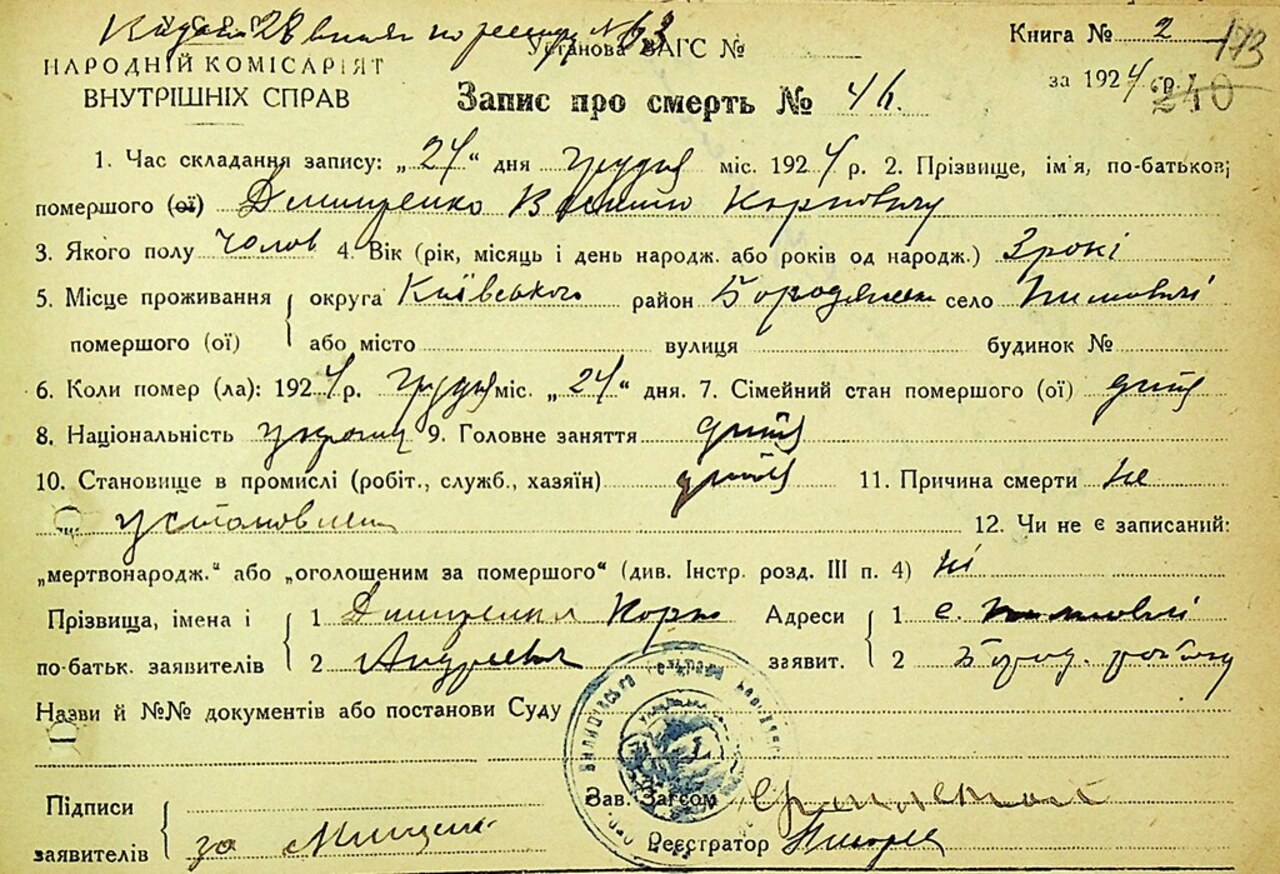 У.С.Р.Р. Установа ЗАГС № Книга № 2
НАРОДНІЙ КОМІСАРІЯТ за 1924 р. 173
ВНУТРІШНІХ СПРАВ Запис про смерть № 46. 240
1. Час складання запису: „24“ дня грудня міс. 1924 р. 2. Прізвище, ім'я, по-батькові
помершого (ої) Дмитренко Василь Корнович
3. Якого полу чолов 4. Вік (рік, місяць і день народж. або років од народж.) 3 рокі
5. Місце проживання округа Київського район Бородянськ село
помершого (ої) або місто вулиця будинок №
6. Коли помер (ла): 1924 р. грудня міс. „24“ дня. 7. Сімейний стан помершого (ої) дитя
8. Національність україн 9. Головне заняття дитя
10. Становище в промислі (робіт., служб., хазяїн) дитя 11. Причина смерти не
установлен 12. Чи не є записаний:
„мертвонародж.“ або „оголошеним за помершого“ (див. Інстр. розд. III п. 4) ні
Прізвища, імена і 1 Дмитренко Корн Адреси 1 с.
по-батьк. заявителів 2 Андреевич заявит. 2 Бород. району
Назви й №№ документів або постанови Суду
Підписи Зав. Загсом
заявителів за Реєстратор